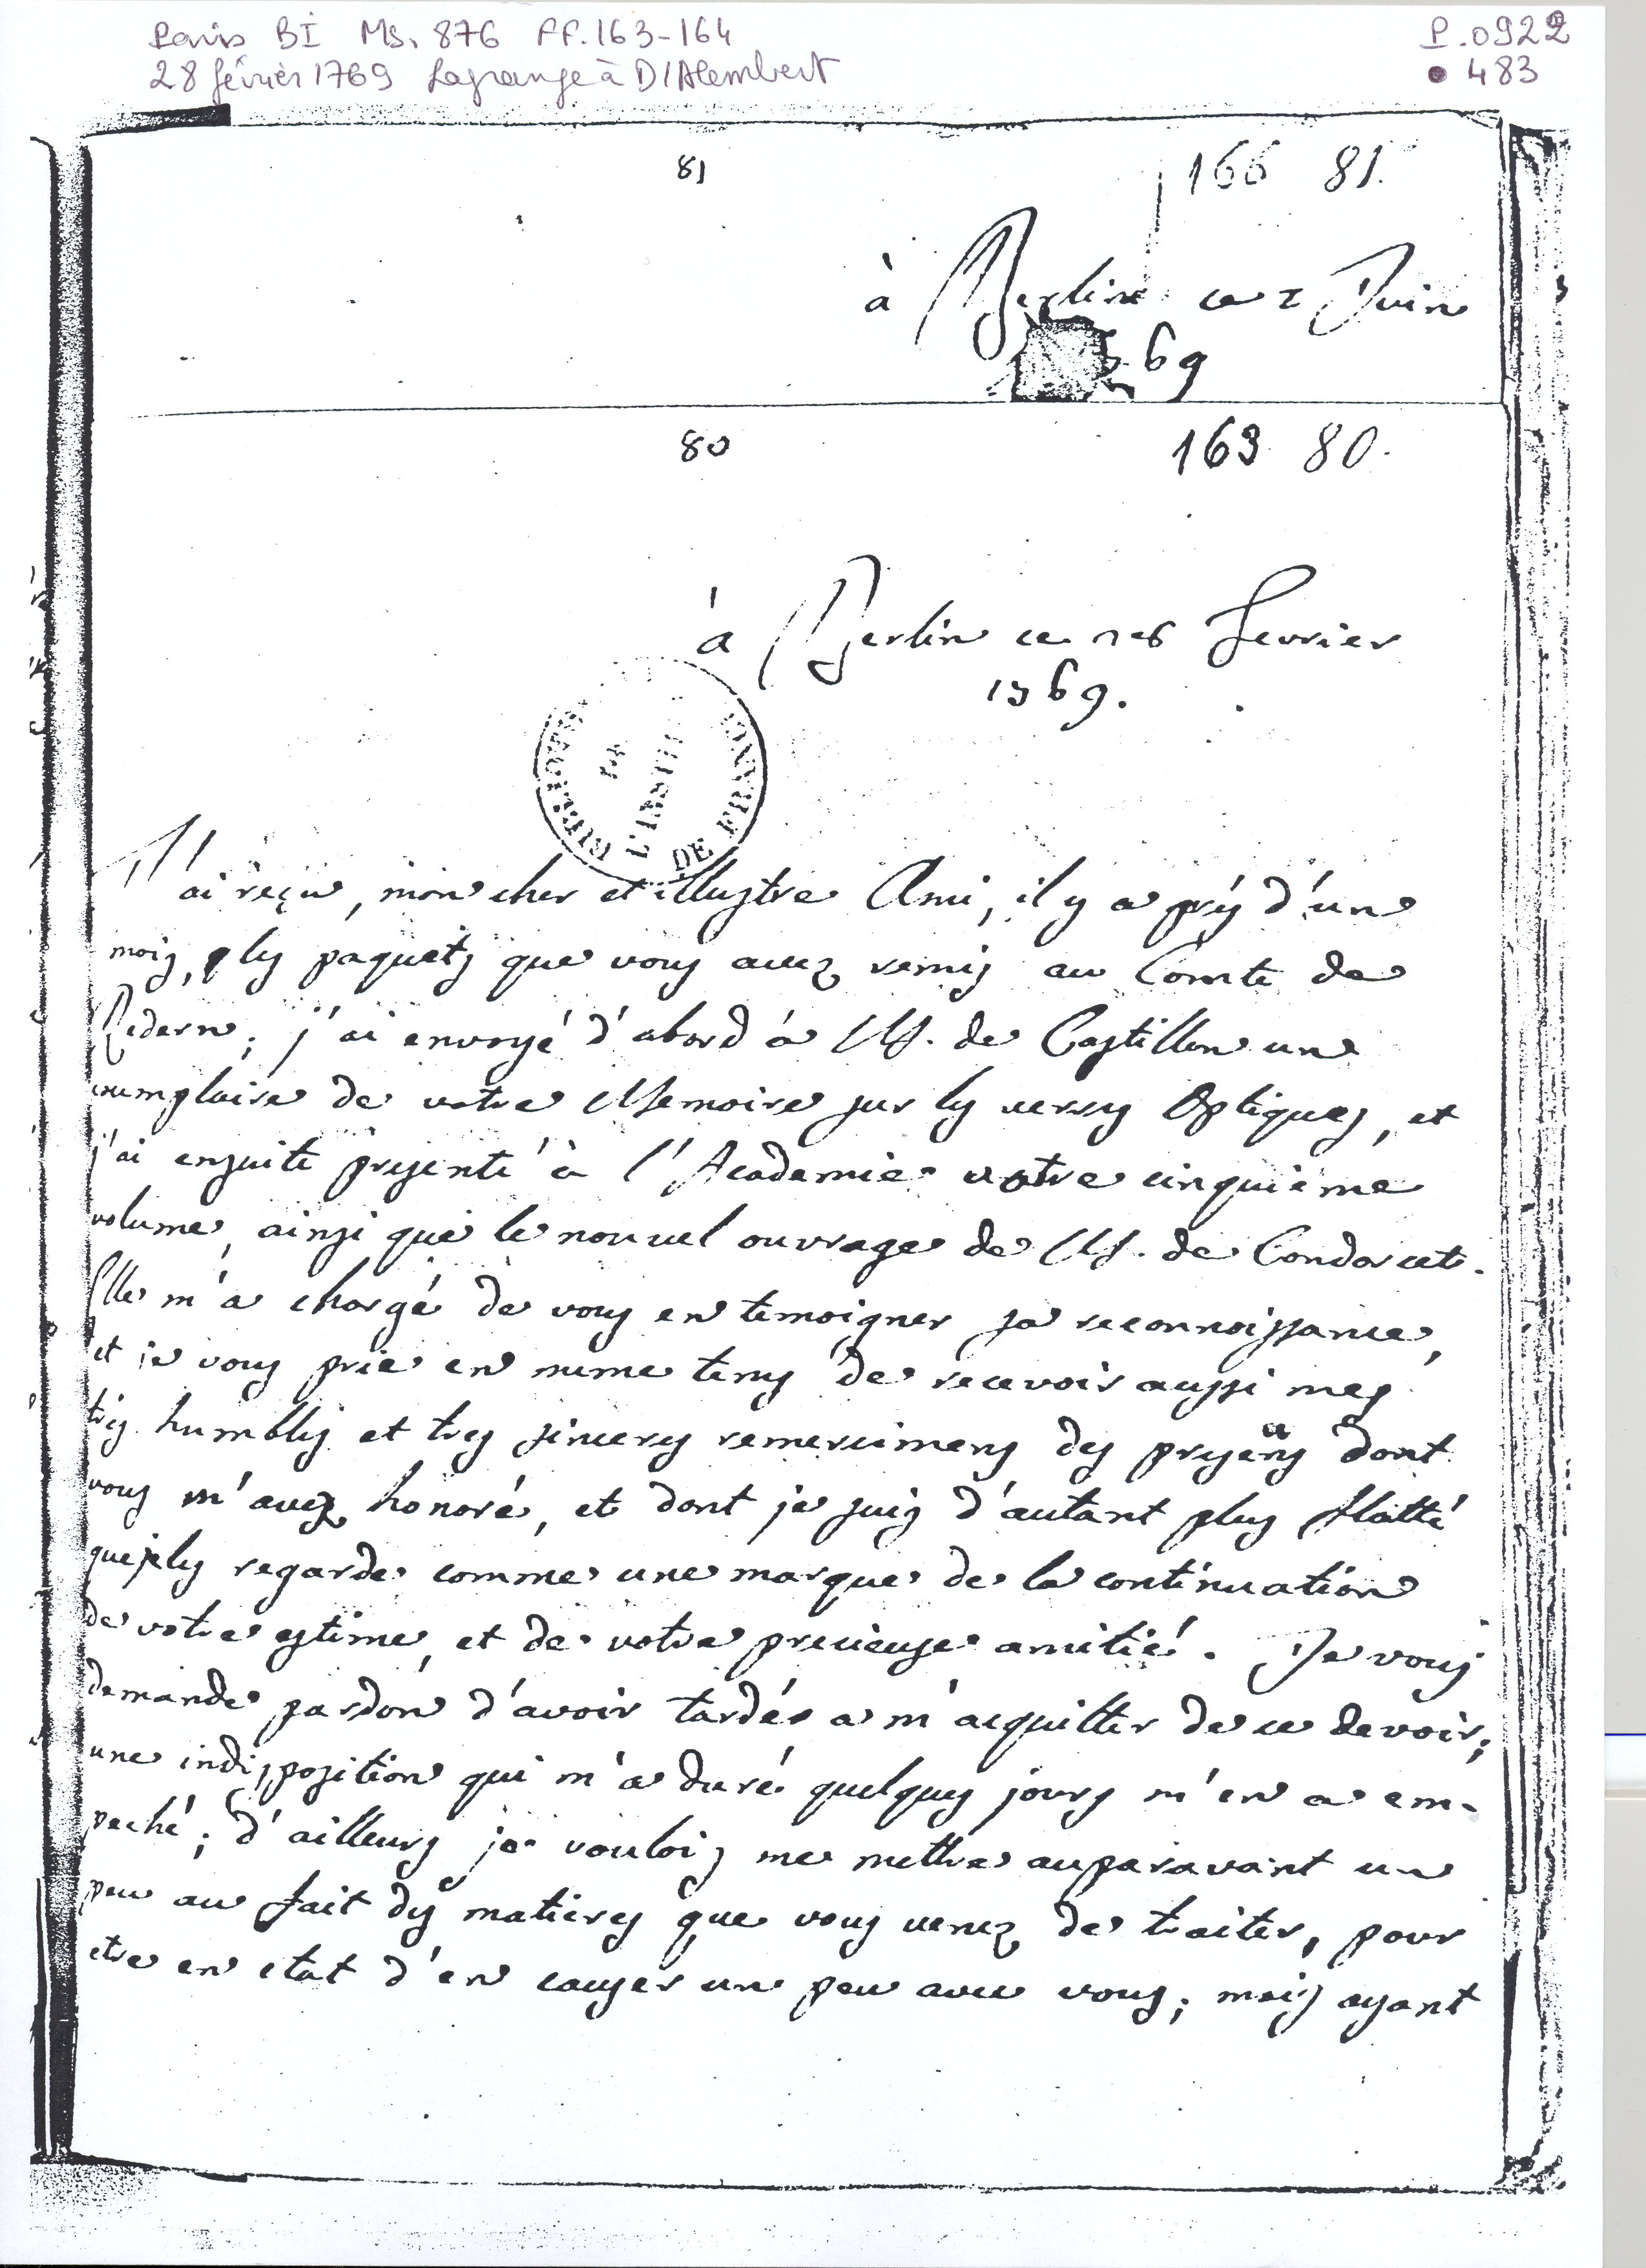 Paris BI Ms. 876 ff. 163-164
28 février 1769 Lagrange à D'Alembert
P.0922
483
81
166 81.
à Berlin ce 2 Juin
69
80
163 80.
à Berlin ce 28 fevrier
1769.
BIBLIOTH
DE
L'INSTIT
DE FRANCE
J'ai reçu, mon cher et illustre Ami, il y a près d'un
mois, les paquets que vous avez remis au Comte de
Redern; j'ai envoyé d'abord à M. de Castillon un
exemplaire de votre Memoire sur les verres Optiques, et
j'ai ensuite presenté à l'Academie votre cinquième
volume, ainsi que le nouvel ouvrage de M. de Condorcet.
Elle m'a chargé de vous en temoigner sa reconnoissance,
et je vous prie en meme tems de recevoir aussi mes
très humbles et tres sinceres remercimens des presens dont
vous m'avez honoré, et dont je suis d'autant plus flatté
que je les regarde comme une marque de la continuation
de votre estime, et de votre precieuse amitié. Je vous
demande pardon d'avoir tardé a m'acquitter de ce devoir;
une indisposition qui m'a duré quelques jours m'en a em-
peché; d'ailleurs je voulois me mettre auparavant un
peu au fait des matieres que vous venez de traiter, pour
etre en etat d'en causer un peu avec vous; mais ayant